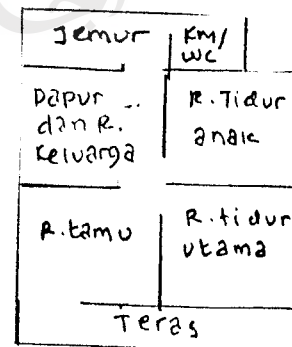 Jemur
KM/
WC
Dapur
dan R.
Keluarga
R. Tidur
anak
R. tamu
R. tidur
utama
Teras